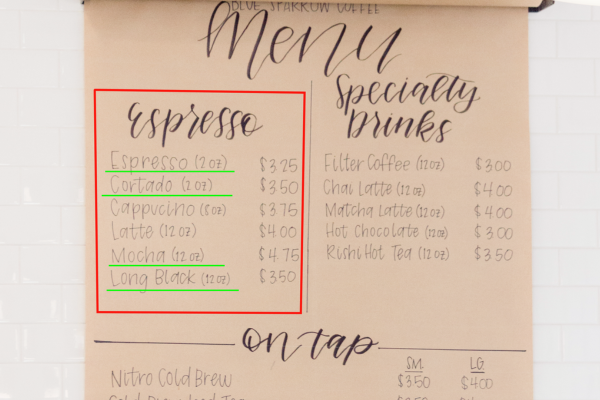 BLUE SPARROW COFFEE
Menu
Espresso
Espresso (2 oz) $3.25
Cortado (2 oz) $3.50
Cappucino (8 oz) $3.75
Latte (12 oz) $4.00
Mocha (12 oz) $4.75
Long Black (12 oz) $3.50
Specialty
Drinks
Filter Coffee (12 oz) $3.00
Chai Latte (12 oz) $4.00
Matcha Latte (12 oz) $4.00
Hot Chocolate (12 oz) $3.00
Rishi Hot Tea (12 oz) $3.50
On tap
SM. LG.
Nitro Cold Brew $3.50 $4.00